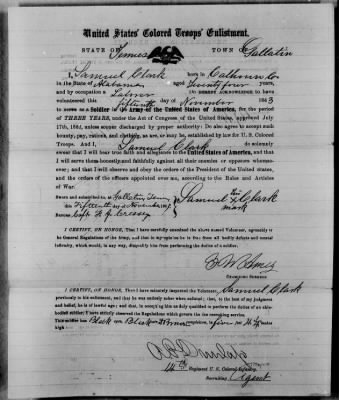 United States' Colored Troops' Enlistment.
STATE OF Tennes TOWN OF Gallatin
I, Samuel Clark born in Calhoun Co.
in the State of Alabama aged Twenty four years,
and by occupation a Laborer Do HEREBY ACKNOWLEDGE to have
volunteered this fifteenth day of November 1863
to serve as a Soldier in the Army of the United States of America, for the period
of THREE YEARS, under the Act of Congress of the United States, approved July
17th, 1862, unless sooner discharged by proper authority: Do also agree to accept such
bounty, pay, rations, and clothing, as are, or may be, established by law for U. S. Colored
Troops. And I, Samuel Clark do solemnly
swear that I will bear true faith and allegiance to the United States of America, and that
I will serve them honestly and faithfully against all their enemies or opposers whomso-
ever; and that I will observe and obey the orders of the President of the United States,
and the orders of the officers appointed over me, according to the Rules and Articles
of War.
Sworn and subscribed to, at Gallatin Tenn
this Fifteenth day of November 1863
BEFORE Capt R. D.
Samuel his X mark Clark
I CERTIFY, ON HONOR, That I have carefully examined the above named Volunteer, agreeably to
the General Regulations of the Army, and that in my opinion he is free from all bodily defects and mental
infirmity, which would, in any way, disqualify him from performing the duties of a soldier.
EXAMINING SURGEON
I CERTIFY, ON HONOR, That I have minutely inspected the Volunteer, Samuel Clark
previously to his enlistment, and that he was entirely sober when enlisted; that, to the best of my judgment
and belief, he is of lawful age; and that, in accepting him as duly qualified to perform the duties of an able-
bodied soldier, I have strictly observed the Regulations which govern the recruiting service.
This soldier has Black eyes, Black hair, complexion, is five feet
high
14th Regiment U. S. Colored Infantry,
Recruiting Agent